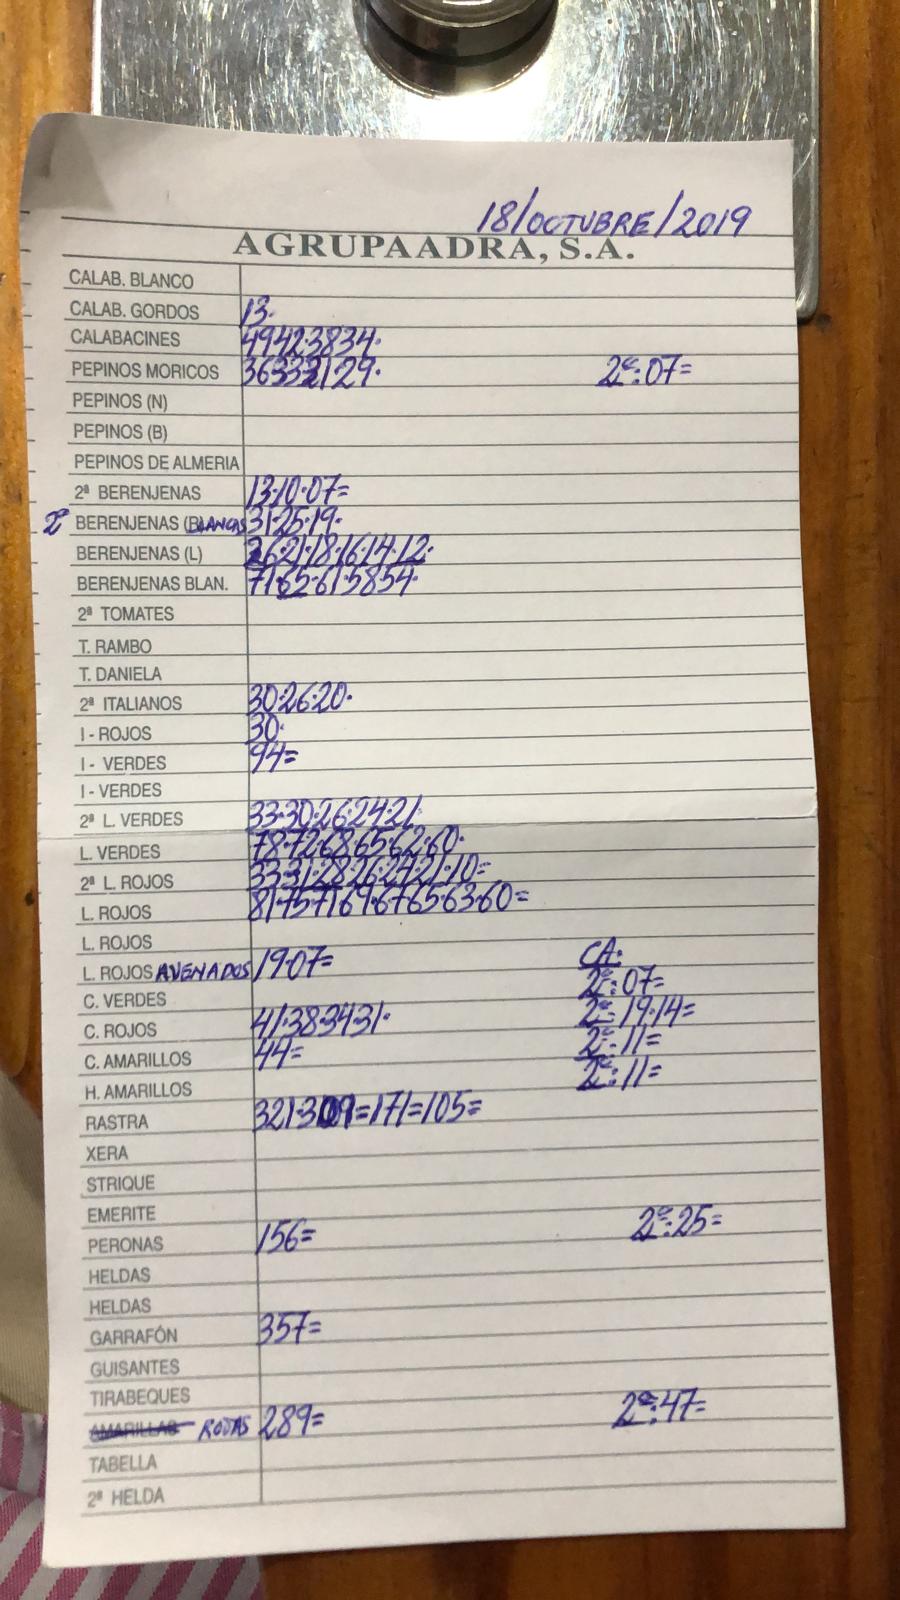 18/OCTUBRE/2019
AGRUPAADRA, S.A.
CALAB. BLANCO
CALAB. GORDOS 13.
CALABACINES 49.42.38.34.
PEPINOS MORICOS 36.33.32.1.29. 2ª:07=
PEPINOS (N)
PEPINOS (B)
PEPINOS DE ALMERIA
2ª BERENJENAS 13.10.07=
2ª BERENJENAS (BLANCAS 31.25.19.
BERENJENAS (L) 26.21.18.16.14.12.
BERENJENAS BLAN. 71.65.61.58.54.
2ª TOMATES
T. RAMBO
T. DANIELA
2ª ITALIANOS 30.26.20.
I - ROJOS 30.
I - VERDES 94=
I - VERDES
2ª L. VERDES 33.30.26.24.21.
L. VERDES 78.72.68.65.62.60.
2ª L. ROJOS 33.31.28.26.24.21.10=
L. ROJOS 81.75.71.69.67.65.63.60=
L. ROJOS CA:
L. ROJOS AVENADOS 19.07= 2ª:07=
C. VERDES 2ª:19.14=
C. ROJOS 41.38.34.31. 2ª:11=
C. AMARILLOS 44= 2ª:11=
H. AMARILLOS
RASTRA 321.309=171=105=
XERA
STRIQUE
EMERITE
PERONAS 156= 2ª:25=
HELDAS
HELDAS
GARRAFÓN 357=
GUISANTES
TIRABEQUES
AMARILLAS ROJAS 289= 2ª:47=
TABELLA
2ª HELDA